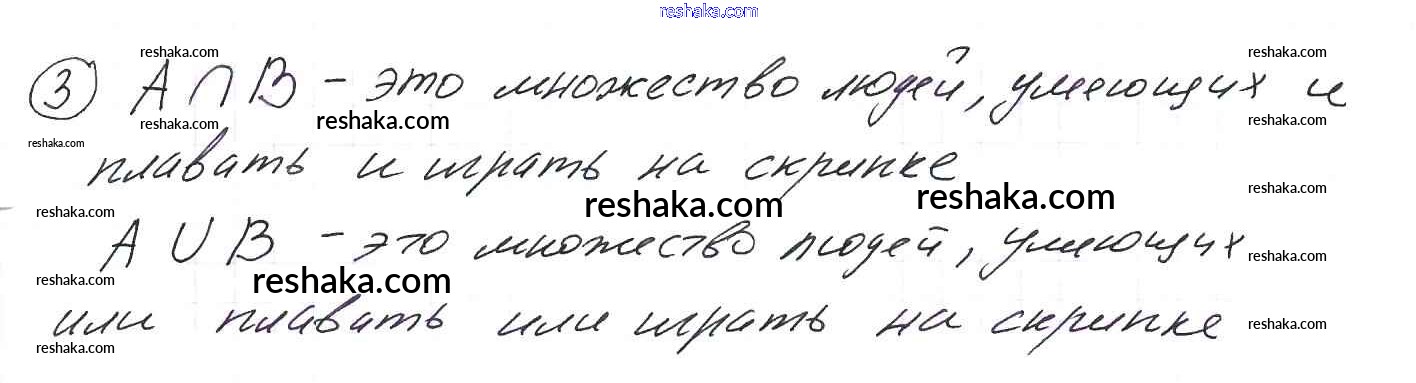 reshaka.com
reshaka.com reshaka.com
③ A ∩ B – это множество людей, умеющих и
reshaka.com reshaka.com reshaka.com
reshaka.com
плавать и играть на скрипке
reshaka.com reshaka.com reshaka.com
reshaka.com
A ∪ B – это множество людей, умеющих
reshaka.com reshaka.com reshaka.com
или плавать или играть на скрипке
reshaka.com reshaka.com